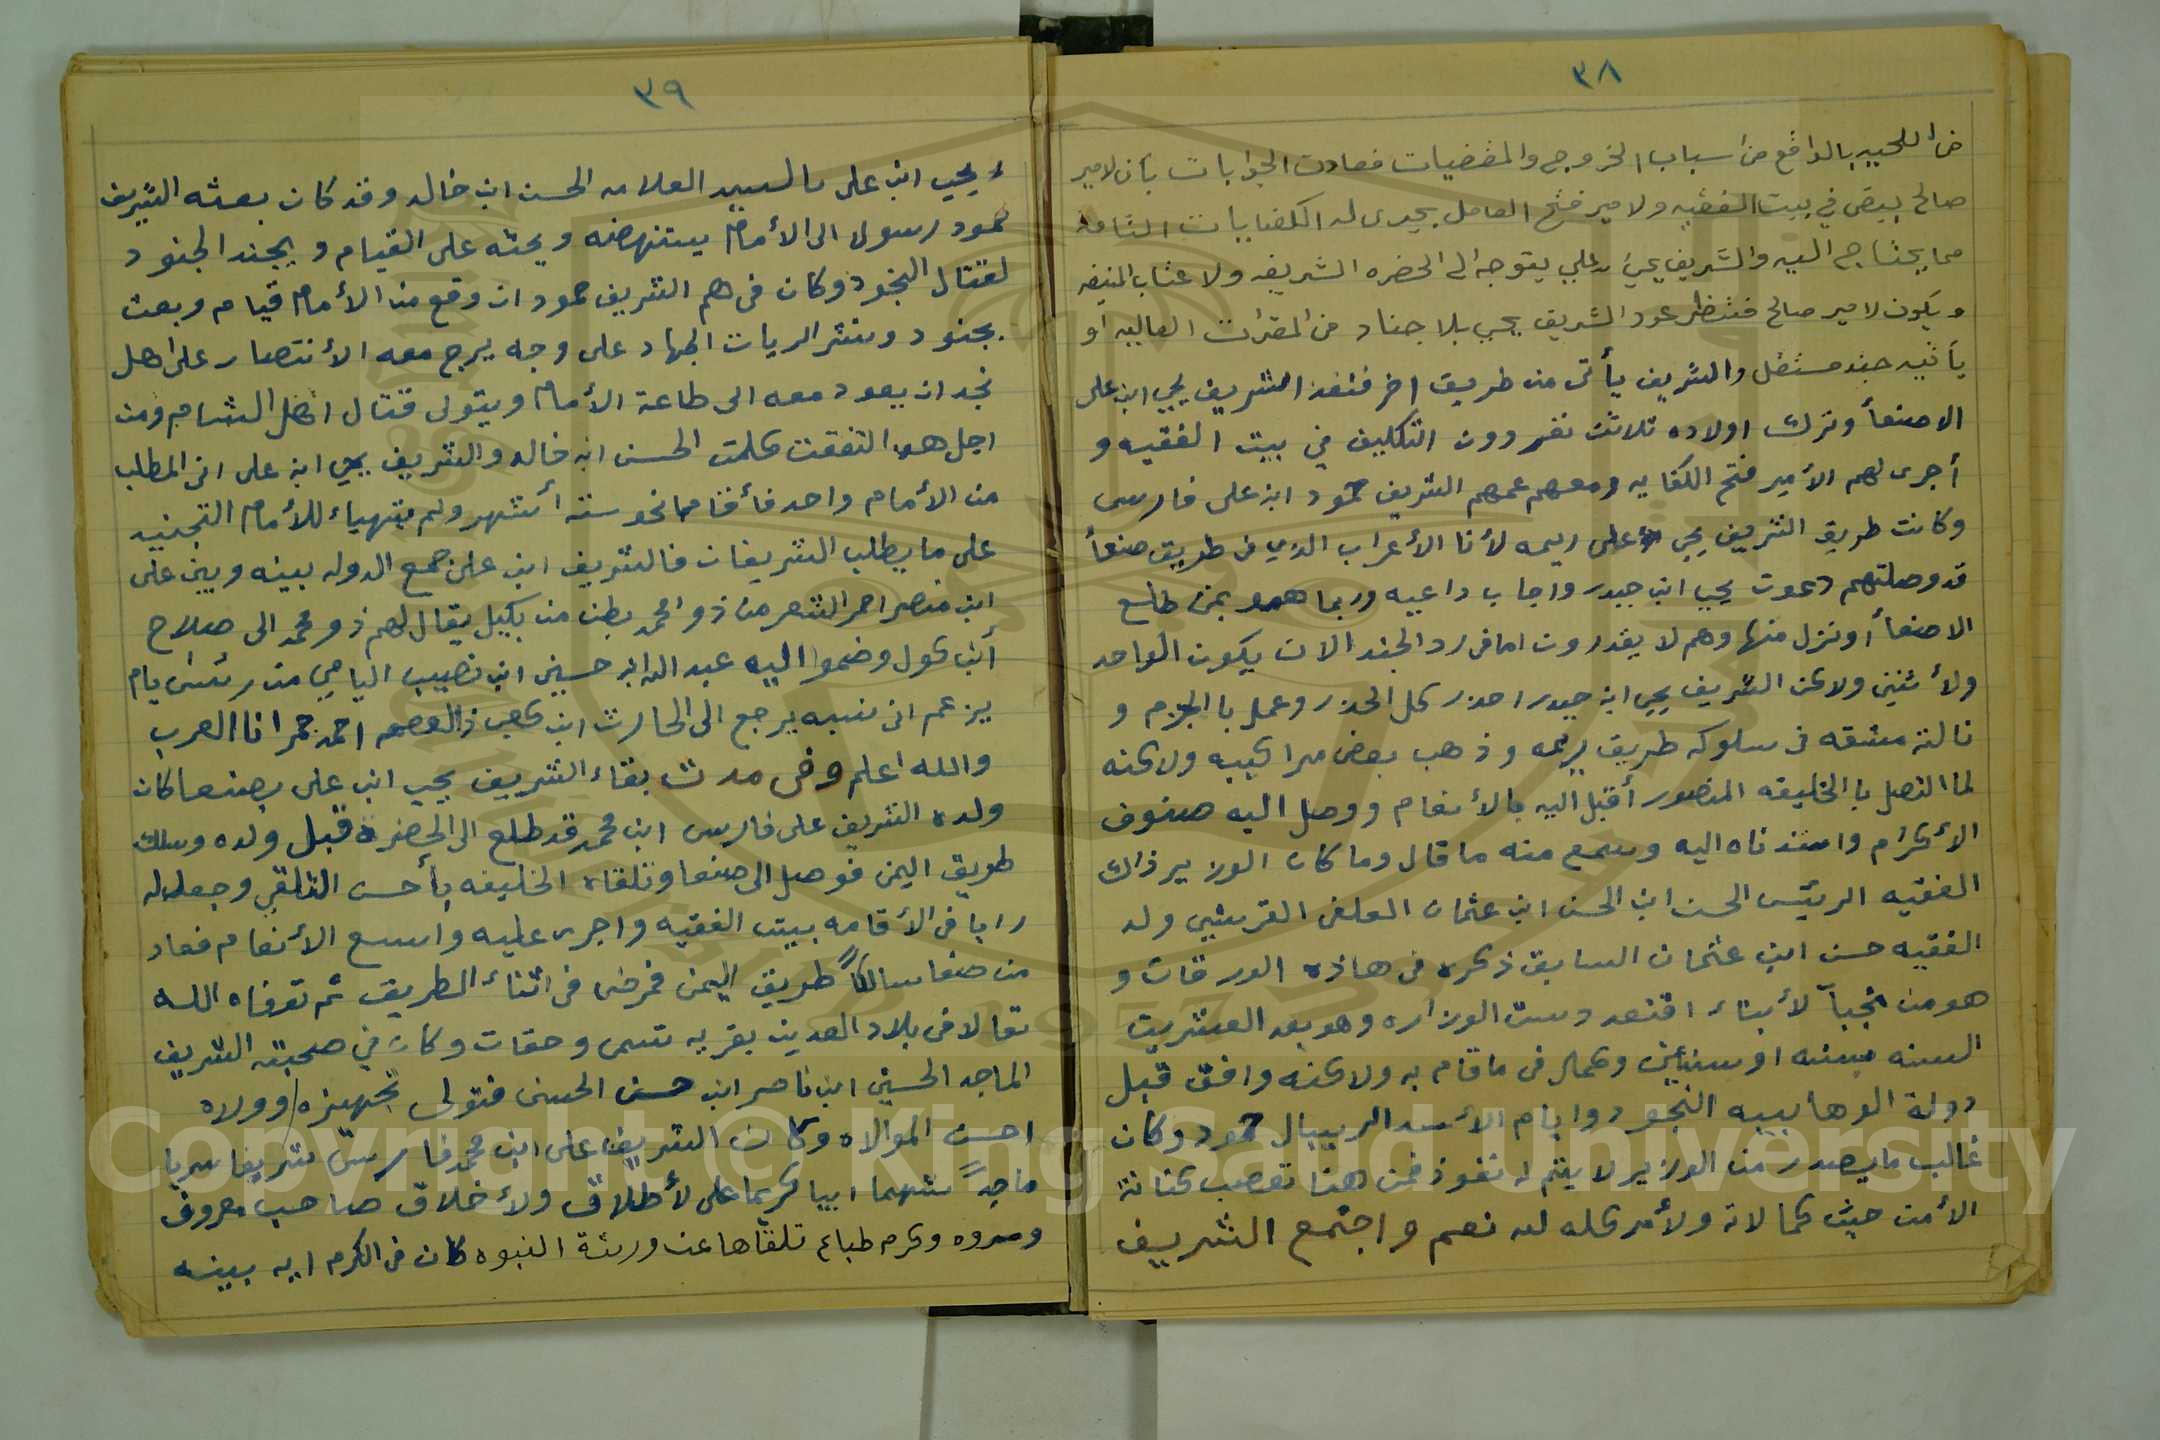 ٣٨
من اللحيه بالواقع من اسباب الخروج والمقضيات فعادت الجوابات بأن لامير
صالح يبقى في بيت الفقيه ولامير فتح العامل يجرى له الكفايات التامه
مما يحتاج اليه والشريف يحيى بن علي يتوجه الى الحضره الشريفه ولا عتاب المنيفه
ويكون لامير صالح منتظر عود الشريف يحيى بلا جناد من المقرات العاليه او
يأتيه جند مستقل والشريف يأتى من طريق اخر فنفذ الشريف يحيى ابن على
الا صنعأ وترك اولاده ثلاثت نفر دون التكليف في بيت الفقيه و
أجرى لهم الأمير فتح الكفايه ومعهم عمهم الشريف حمود ابن على فارس
وكانت طريق الشريف يحيى على ريمه لأنا الأعراب الذي في طريق صنعأ
قد وصلتهم دعوت يحيى ابن حيدر واجاب داعيه وربما همو بمن طلع
الا صنعأ او نزل منها وهم لا يقدرون اما فى رد الجند الا ان يكون الواحد
ولأ ثنين ولاكن الشريف يحيى ابن حيدر احذر كل الحذر وعمل با الجزم و
نالته مشقه فى سلوكه طريق ريمه وذهب بعض مراكيبه ولاكنه
لما اتصل با الخليفه المنصور أقبل اليه بالأنعام ووصل اليه صنوف
الأكرام واستدناه اليه وسمع منه ما قال وما كان الوزير ذاك
الفقيه الرئيس الحسن ابن الحسن ابن عثمان العلفى القرشي ولد
الفقيه حسن ابن عثمان السابق ذكره فى هاذه الورقات و
هو من نجبآ لأبناء اقتعد دست الوزاره وهو بعد العشرين
السنه بسنه او سنتين وكمال فى ما قام به ولاكنه وافق قبل
دولة الوهابيه النجود وايام الأسد الريبال حمود وكان
غالب ما يصدر من الوزير لا يتم له نفوذ فمن هنا تعصب كنانة
الأمن حيث كمالاته ولأمر كله لله نعم واجتمع الشريف
٣٩
يحيى ابن على بالسيد العلامه الحسن ابن خالد وقد كان بعثه الشريف
حمود رسولا الى الأمام يستنهضه ويحثه على القيام ويجند الجنود
لقتال النجود وكان فى هم الشريف حمود ان وقع من الأمام قيام وبعث
بجنود ونشر الريات الجهاد على وجه يرجى معه الأنتصار على اهل
نجد ان يعود معه الى طاعة الأمام ويتولى قتال اهل الشام ومن
اجل هو التفقت كلمت الحسن ابن خالد والشريف يحيى ابن على انى المطلب
من الأمام واحد فأقاما نحو ستة أشهر ولم يتهياء للأمام التجنيد
على ما يطلب الشريفان فالشريف ابن على جمع الدوله بينه وبين على
ابن منصر احمر الشعر من ذو محمد بطن من بكيل يقال لهم ذو محمد الى صلاح
أبن كول وضموا اليه عبد الله ابن حسين ابن نصيب اليامي من رئسى يام
يزعم ان نسبه يرجع الى الحارث ابن كعب ذالعصه احمد جمرانا العرب
والله اعلم وفى مدت بقاء الشريف يحيى ابن على بصنعا كان
ولده الشريف على فارس ابن محمد قد طلع الى الحضرة قبل ولده وسلك
طريق اليمن فوصل الى صنعا وتلقاه الخليفه بأحسن التلقي وجعل له
رابا فى الأقامه ببيت الفقيه واجرى عليه واسع الأنعام فعاد
من صنعا سالكاً طريق اليمن فمرض فى اثناء الطريق ثم توفاه الله
تعالا فى بلاد العدين بقريه تسمى وحقات وكان في صحبته الشريف
الماجد الحسين ابن ناصر ابن حسن الحسنى فتولى تجهيزه ووولاه
احسن الموالاه وكان الشريف على ابن محمد فارس شريفا سريا
ماجداً شهما ابيا كريما على لأطلاق ولأخلاق صاحب معروف
ومروه وكرم طباع تلقاها عن ورثة النبوه كان فى الكرم ايه بينه
Copyright © King Saud University